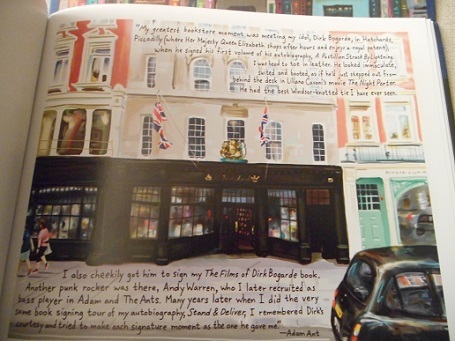 "My greatest bookstore moment was meeting my idol, Dirk Bogarde, in Hatchards,
Piccadilly (where Her Majesty Queen Elizabeth shops after hours and enjoys a royal patent),
when he signed his first volume of his autobiography, A Postillion Struck By Lightning.
I was head to toe in leather. He looked immaculate,
suited and booted, as if he'd just stepped out from
behind the desk in Liliana Cavani's movie The Night Porter.
He had the best Windsor-knotted tie I have ever seen.
I also cheekily got him to sign my The Films of Dirk Bogarde book.
Another punk rocker was there, Andy Warren, who I later recruited as
bass player in Adam and The Ants. Many years later when I did the very
same book signing tour of my autobiography, Stand & Deliver, I remembered Dirk's
courtesy and tried to make each signature moment as the one he gave me."
—Adam Ant